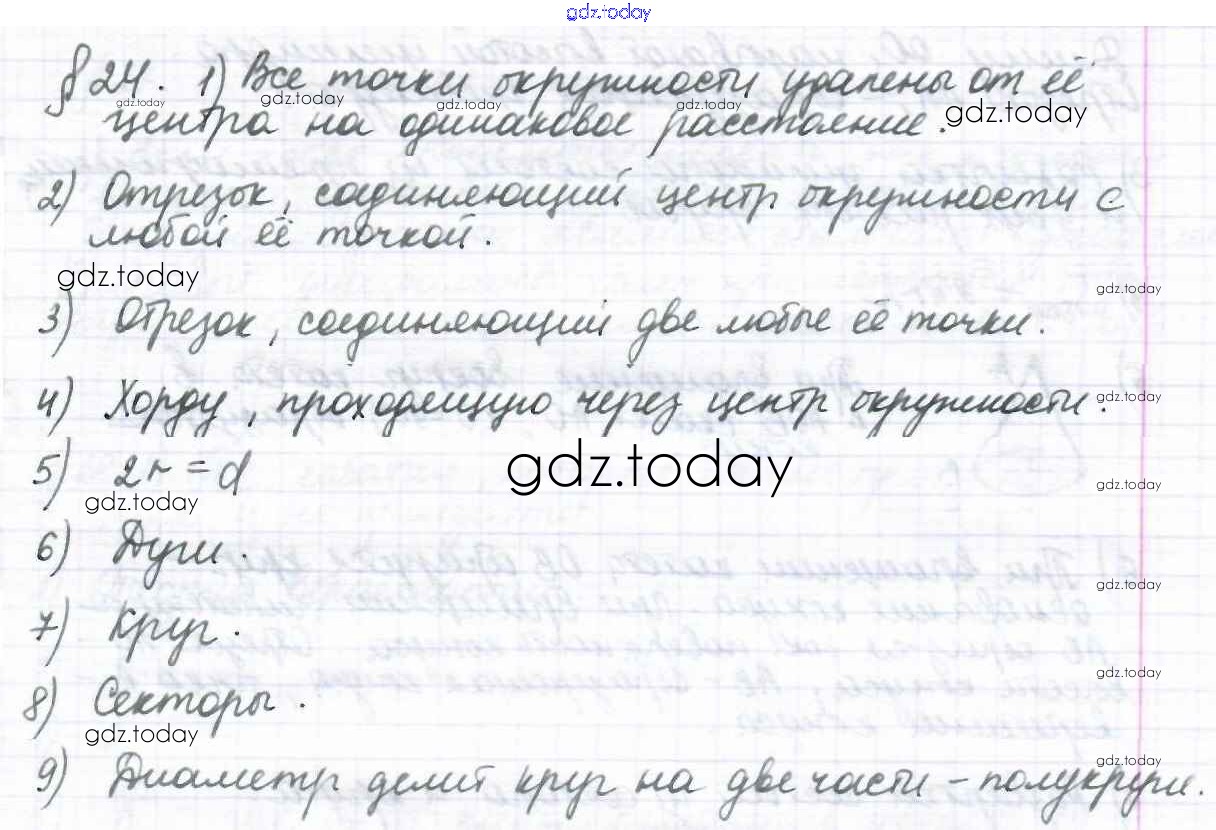 gdz.today
§ 24. 1) Все точки окружности удалены от её
gdz.today gdz.today gdz.today gdz.today gdz.today
центра на одинаковое расстояние.
2) Отрезок, соединяющий центр окружности с
любой её точкой.
gdz.today gdz.today
3) Отрезок, соединяющий две любые её точки.
4) Хорду, проходящую через центр окружности.
gdz.today
5) 2r = d
gdz.today gdz.today gdz.today
6) Дуги.
gdz.today
7) Круг.
gdz.today
8) Секторы.
gdz.today gdz.today
9) Диаметр делит круг на две части – полукруги.